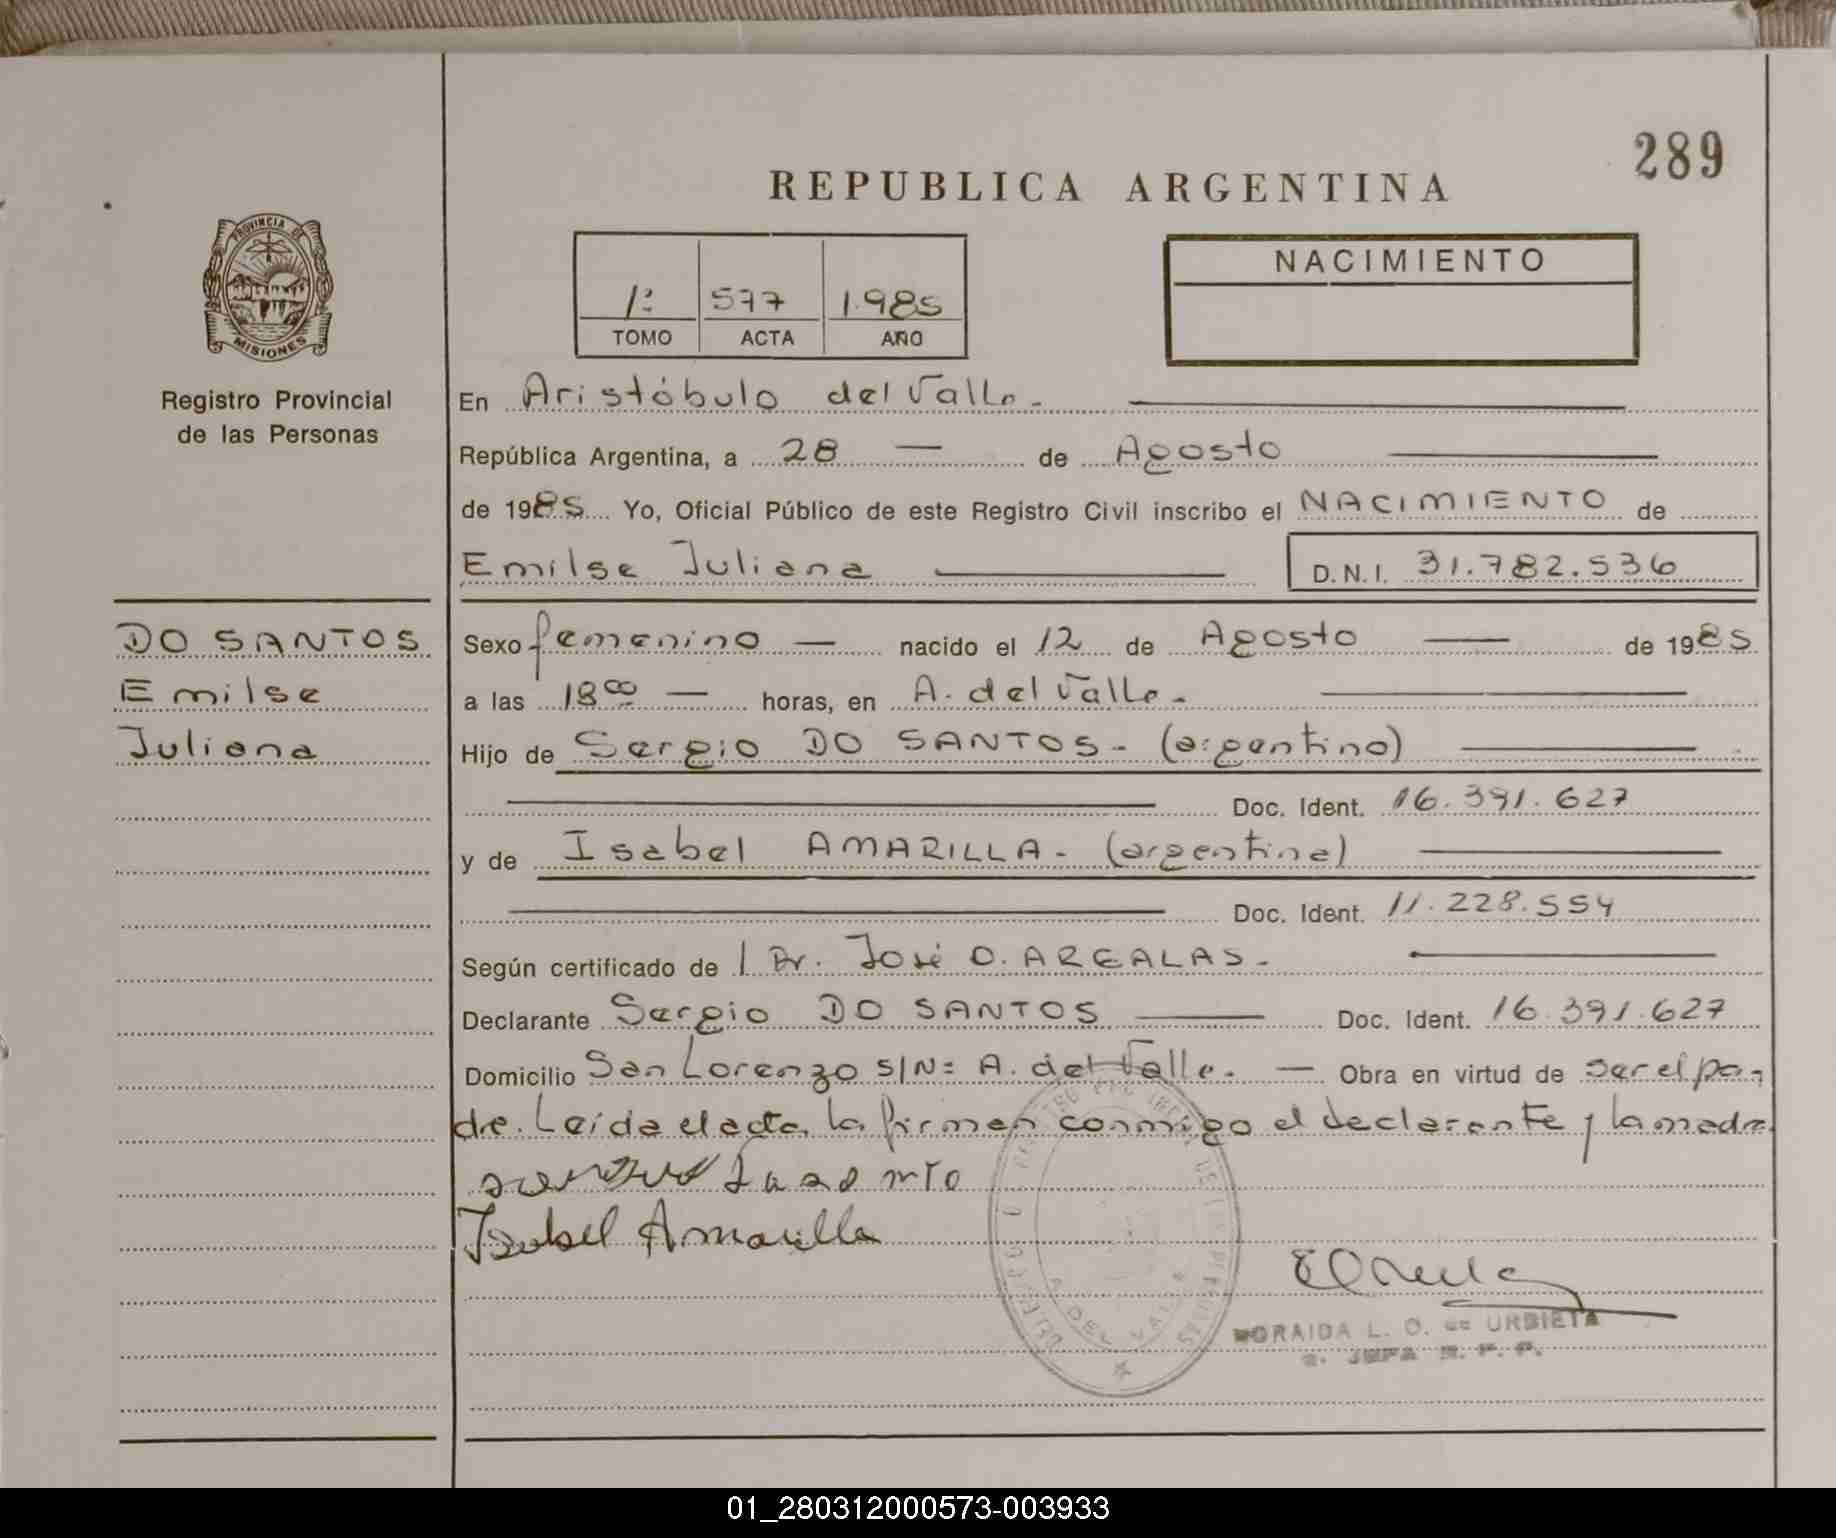 289
REPUBLICA ARGENTINA
PROVINCIA DE
MISIONES
Registro Provincial
de las Personas
1º 577 1.985
TOMO ACTA AÑO
NACIMIENTO
En Aristóbulo del Valle.
República Argentina, a 28 — de Agosto
de 1985 Yo, Oficial Público de este Registro Civil inscribo el NACIMIENTO de
Emilse Juliana D.N.I. 31.782.536
DO SANTOS
Emilse
Juliana
Sexo femenino — nacido el 12 de Agosto — de 1985
a las 18 00 — horas, en A. del Valle.
Hijo de Sergio DO SANTOS. (argentino)
Doc. Ident. 16.391.627
y de Isabel AMARILLA. (argentina)
Doc. Ident. 11.228.554
Según certificado de l Dr. José O. ARGALAS.
Declarante Sergio DO SANTOS — Doc. Ident. 16.391.627
Domicilio San Lorenzo S/Nº A. del Valle. — Obra en virtud de ser el pa-
dre. Leída el acta, la firman conmigo el declarante y la madre.
Isabel Amarilla
A. DEL VALLE
L. O. de URBIETA
01_280312000573-003933